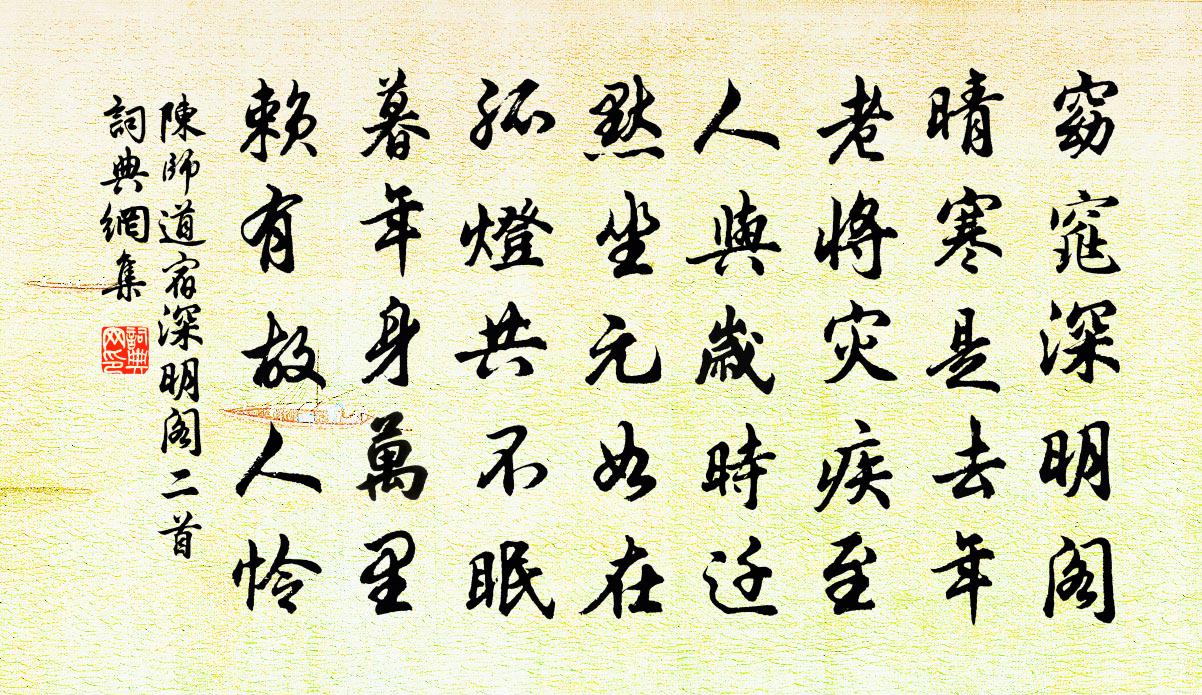 窈窕深明閣
晴寒是去年
老將灾疾至
人與歲時迁
默坐元如在
孤燈共不眠
暮年身萬里
賴有故人怜
陳師道宿深明閣二首
詞典網集
詞典網印